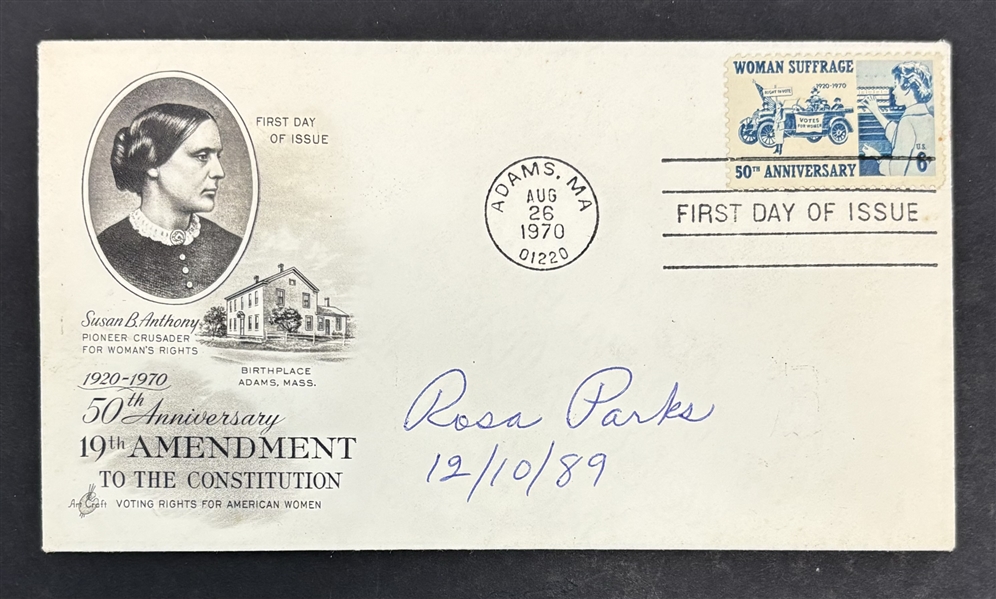 FIRST DAY
OF ISSUE
Susan B. Anthony
PIONEER CRUSADER
FOR WOMAN'S RIGHTS
BIRTHPLACE
ADAMS, MASS.
1920-1970
50th Anniversary
19th AMENDMENT
TO THE CONSTITUTION
Art Craft VOTING RIGHTS FOR AMERICAN WOMEN
ADAMS, MA
AUG
26
1970
01220
WOMAN SUFFRAGE
1920-1970
VOTES
FOR WOMEN
U.S.
6
50TH ANNIVERSARY
FIRST DAY OF ISSUE
Rosa Parks
12/10/89